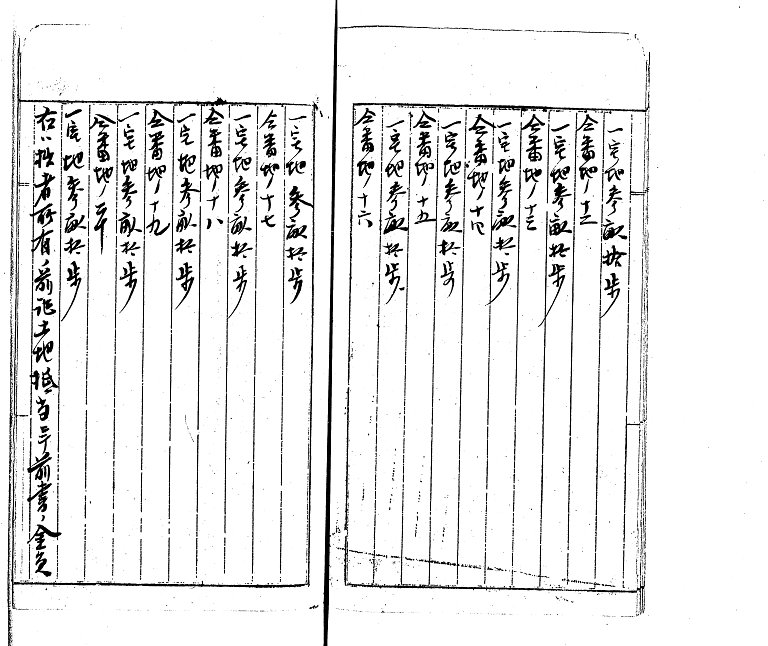 一宅地参畝拾歩
仝番地ノ十二
一宅地参畝拾歩
仝番地ノ十三
一宅地参畝拾歩
仝番地ノ十四
一宅地参畝拾歩
仝番地ノ十五
一宅地参畝拾歩
仝番地ノ十六
一宅地参畝拾歩
仝番地ノ十七
一宅地参畝拾歩
仝番地ノ十八
一宅地参畝拾歩
仝番地ノ十九
一宅地参畝拾歩
仝番地ノ二十
一宅地参畝拾歩
右ハ拙者所有ノ前記土地抵当ニ前書ノ金員